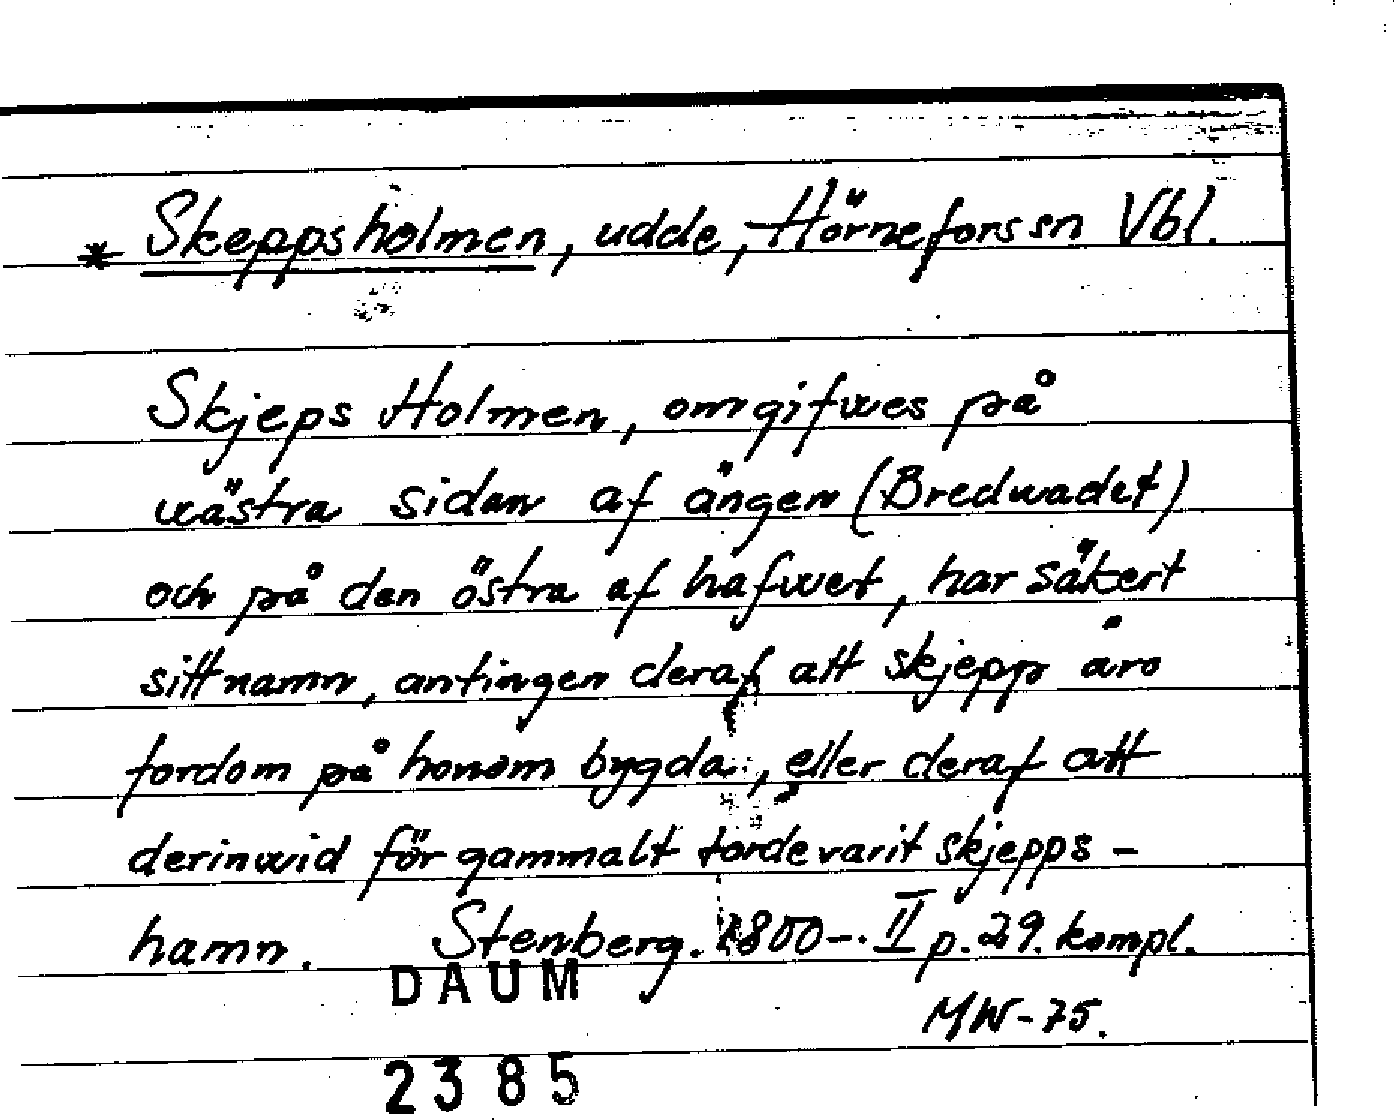 * Skeppsholmen, udde, Hörnefors sn Vbl.
Skjeps Holmen, omgifwes på
wästra sidan af ängen (Bredwadet)
och på den östra af hafwet, har säkert
sitt namn, antingen deraf att skjepp äro
fordom på honom bygda, eller deraf att
derinwid för gammalt torde varit skjepps-
hamn. Stenberg. 1800-. II p. 29. kompl.
DAUM
MW-75.
2385